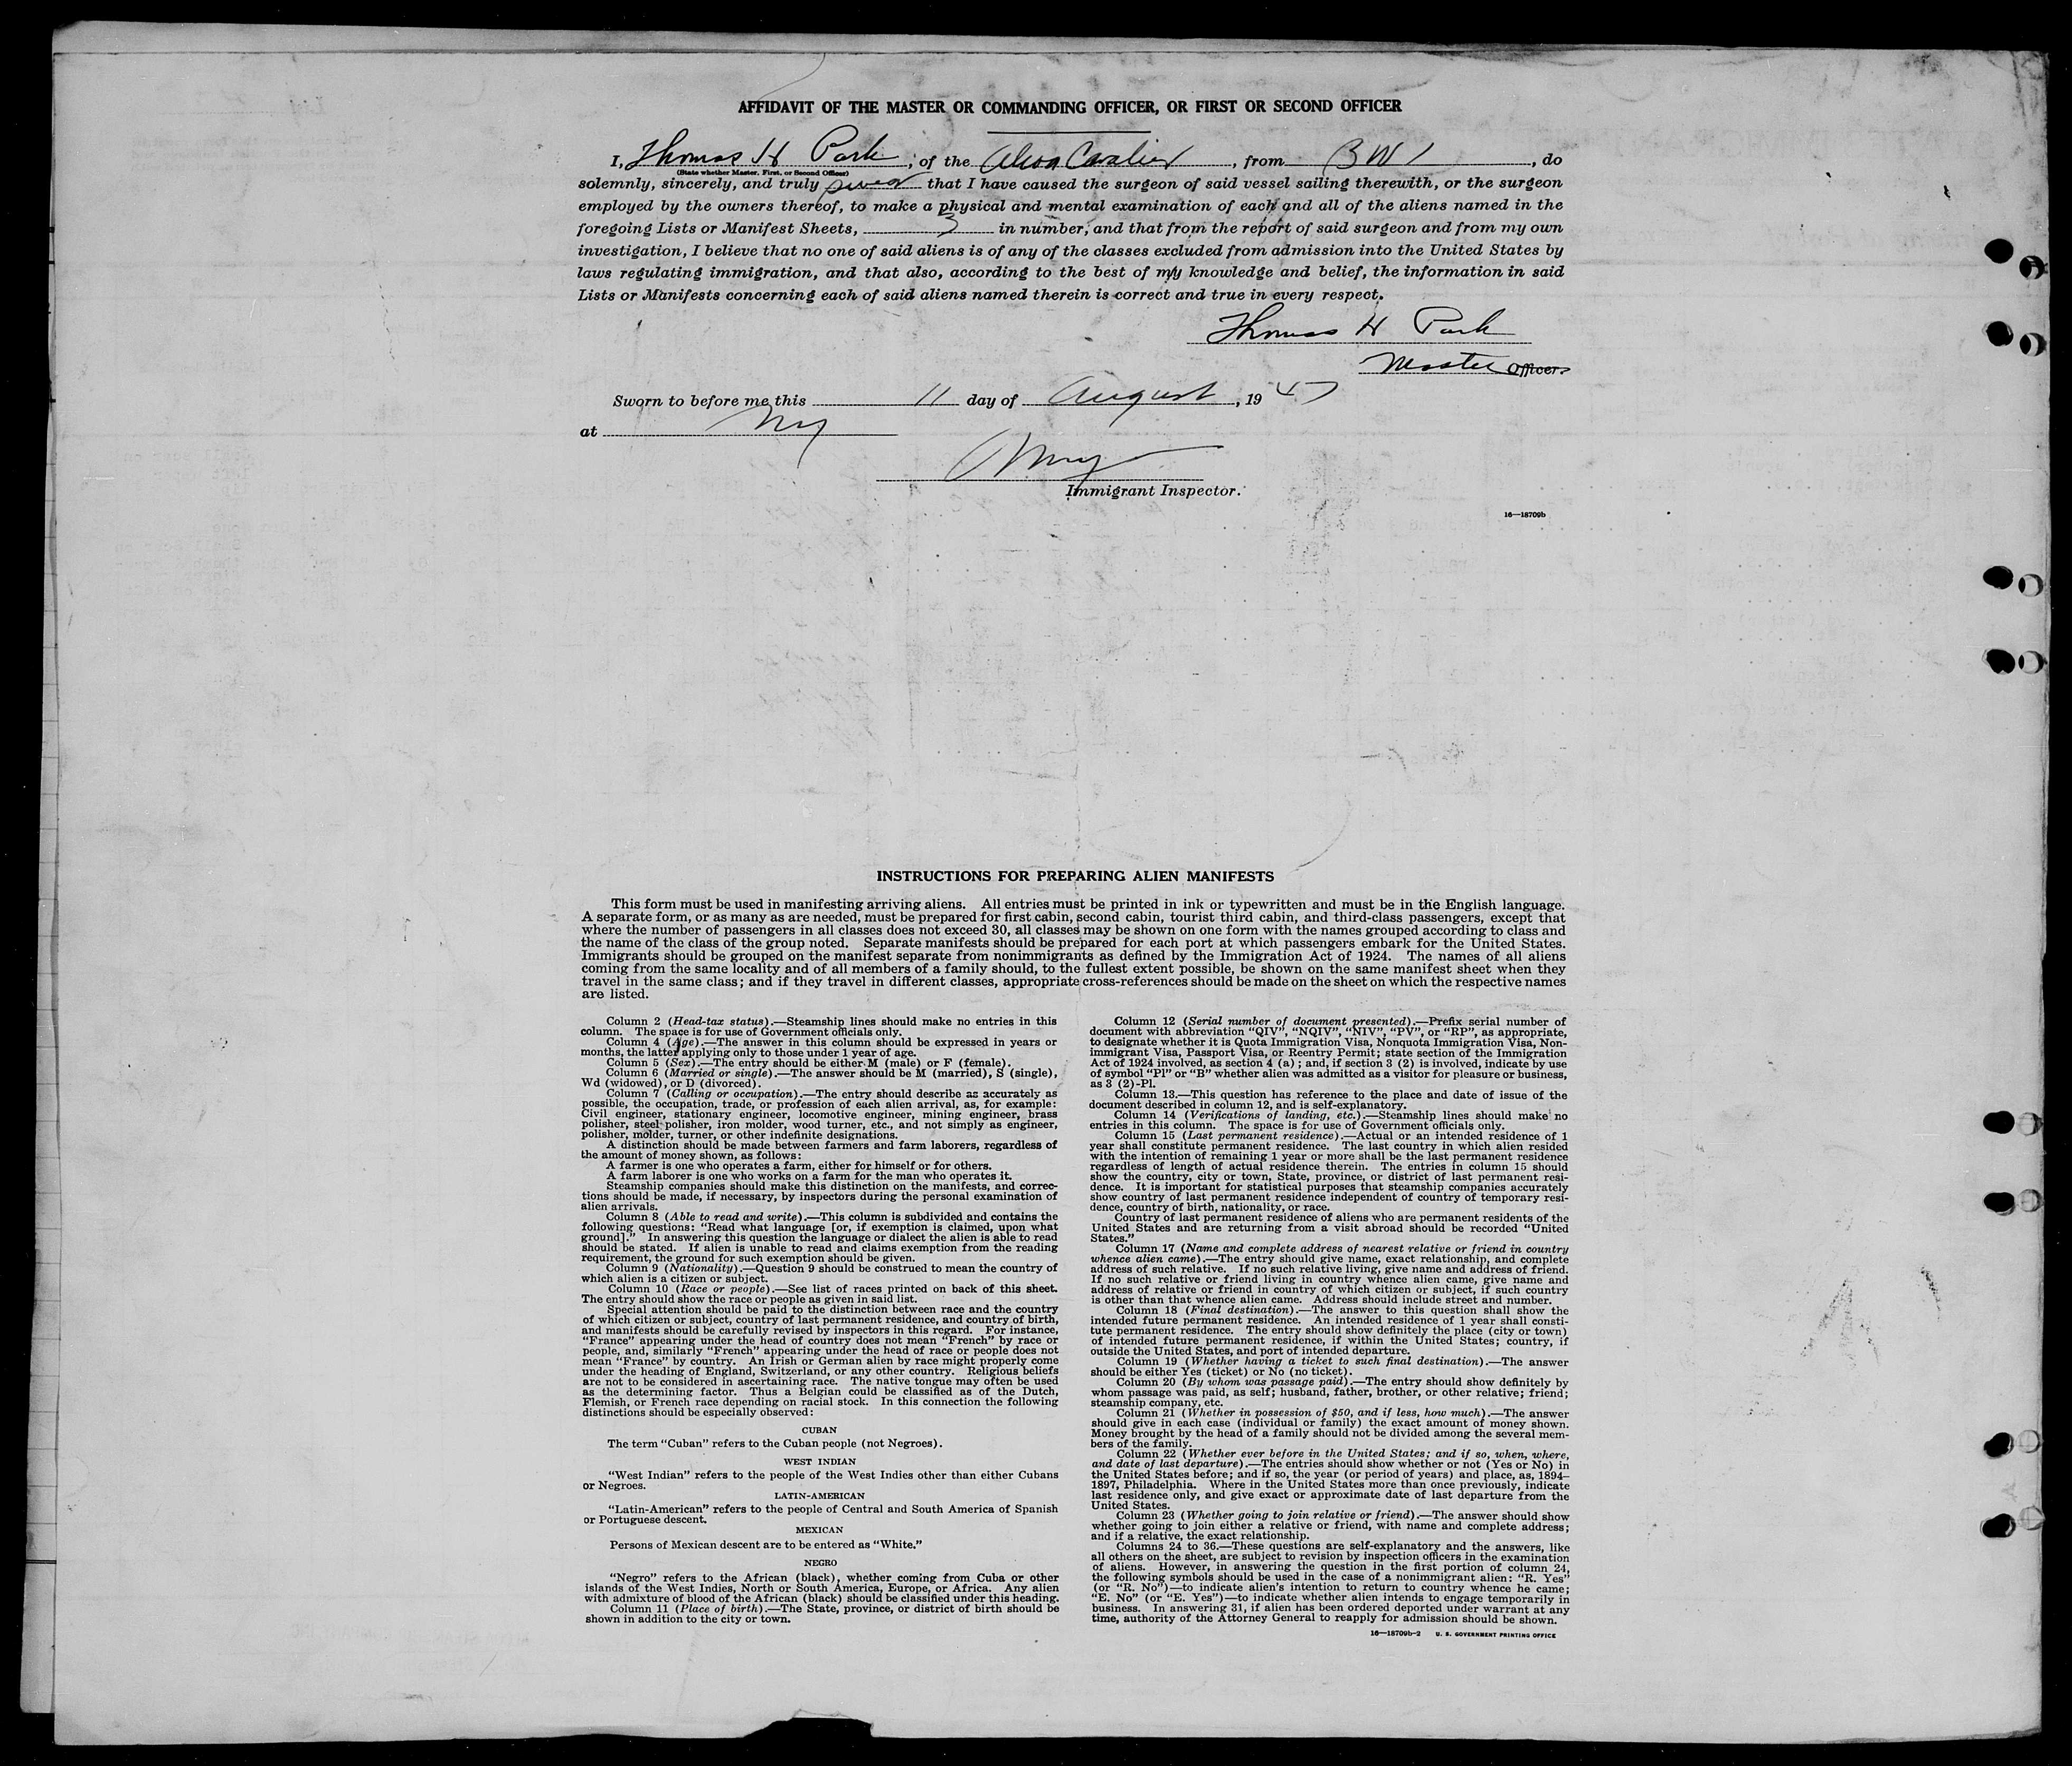 AFFIDAVIT OF THE MASTER OR COMMANDING OFFICER, OR FIRST OR SECOND OFFICER
I, Thomas H Park, of the Alcoa Cavalier, from B W I, do
(State whether Master, First, or Second Officer)
solemnly, sincerely, and truly swear that I have caused the surgeon of said vessel sailing therewith, or the surgeon
employed by the owners thereof, to make a physical and mental examination of each and all of the aliens named in the
foregoing Lists or Manifest Sheets, 3 in number, and that from the report of said surgeon and from my own
investigation, I believe that no one of said aliens is of any of the classes excluded from admission into the United States by
laws regulating immigration, and that also, according to the best of my knowledge and belief, the information in said
Lists or Manifests concerning each of said aliens named therein is correct and true in every respect.
Thomas H Park
Master Officer.
Sworn to before me this 11 day of August, 1947
at NY
Immigrant Inspector.
16—18709b
INSTRUCTIONS FOR PREPARING ALIEN MANIFESTS
This form must be used in manifesting arriving aliens. All entries must be printed in ink or typewritten and must be in the English language.
A separate form, or as many as are needed, must be prepared for first cabin, second cabin, tourist third cabin, and third-class passengers, except that
where the number of passengers in all classes does not exceed 30, all classes may be shown on one form with the names grouped according to class and
the name of the class of the group noted. Separate manifests should be prepared for each port at which passengers embark for the United States.
Immigrants should be grouped on the manifest separate from nonimmigrants as defined by the Immigration Act of 1924. The names of all aliens
coming from the same locality and of all members of a family should, to the fullest extent possible, be shown on the same manifest sheet when they
travel in the same class; and if they travel in different classes, appropriate cross-references should be made on the sheet on which the respective names
are listed.
Column 2 (Head-tax status).—Steamship lines should make no entries in this
column. The space is for use of Government officials only.
Column 4 (Age).—The answer in this column should be expressed in years or
months, the latter applying only to those under 1 year of age.
Column 5 (Sex).—The entry should be either M (male) or F (female).
Column 6 (Married or single).—The answer should be M (married), S (single),
Wd (widowed), or D (divorced).
Column 7 (Calling or occupation).—The entry should describe as accurately as
possible, the occupation, trade, or profession of each alien arrival, as, for example:
Civil engineer, stationary engineer, locomotive engineer, mining engineer, brass
polisher, steel polisher, iron molder, wood turner, etc., and not simply as engineer,
polisher, molder, turner, or other indefinite designations.
A distinction should be made between farmers and farm laborers, regardless of
the amount of money shown, as follows:
A farmer is one who operates a farm, either for himself or for others.
A farm laborer is one who works on a farm for the man who operates it.
Steamship companies should make this distinction on the manifests, and correc-
tions should be made, if necessary, by inspectors during the personal examination of
alien arrivals.
Column 8 (Able to read and write).—This column is subdivided and contains the
following questions: "Read what language [or, if exemption is claimed, upon what
ground]." In answering this question the language or dialect the alien is able to read
should be stated. If alien is unable to read and claims exemption from the reading
requirement, the ground for such exemption should be given.
Column 9 (Nationality).—Question 9 should be construed to mean the country of
which alien is a citizen or subject.
Column 10 (Race or people).—See list of races printed on back of this sheet.
The entry should show the race or people as given in said list.
Special attention should be paid to the distinction between race and the country
of which citizen or subject, country of last permanent residence, and country of birth,
and manifests should be carefully revised by inspectors in this regard. For instance,
"France" appearing under the head of country does not mean "French" by race or
people, and, similarly "French" appearing under the head of race or people does not
mean "France" by country. An Irish or German alien by race might properly come
under the heading of England, Switzerland, or any other country. Religious beliefs
are not to be considered in ascertaining race. The native tongue may often be used
as the determining factor. Thus a Belgian could be classified as of the Dutch,
Flemish, or French race depending on racial stock. In this connection the following
distinctions should be especially observed:
CUBAN
The term "Cuban" refers to the Cuban people (not Negroes).
WEST INDIAN
"West Indian" refers to the people of the West Indies other than either Cubans
or Negroes.
LATIN-AMERICAN
"Latin-American" refers to the people of Central and South America of Spanish
or Portuguese descent.
MEXICAN
Persons of Mexican descent are to be entered as "White."
NEGRO
"Negro" refers to the African (black), whether coming from Cuba or other
islands of the West Indies, North or South America, Europe, or Africa. Any alien
with admixture of blood of the African (black) should be classified under this heading.
Column 11 (Place of birth).—The State, province, or district of birth should be
shown in addition to the city or town.
Column 12 (Serial number of document presented).—Prefix serial number of
document with abbreviation "QIV", "NQIV", "NIV", "PV", or "RP", as appropriate,
to designate whether it is Quota Immigration Visa, Nonquota Immigration Visa, Non-
immigrant Visa, Passport Visa, or Reentry Permit; state section of the Immigration
Act of 1924 involved, as section 4 (a); and, if section 3 (2) is involved, indicate by use
of symbol "Pl" or "B" whether alien was admitted as a visitor for pleasure or business,
as 3 (2)-Pl.
Column 13.—This question has reference to the place and date of issue of the
document described in column 12, and is self-explanatory.
Column 14 (Verifications of landing, etc.).—Steamship lines should make no
entries in this column. The space is for use of Government officials only.
Column 15 (Last permanent residence).—Actual or an intended residence of 1
year shall constitute permanent residence. The last country in which alien resided
with the intention of remaining 1 year or more shall be the last permanent residence
regardless of length of actual residence therein. The entries in column 15 should
show the country, city or town, State, province, or district of last permanent resi-
dence. It is important for statistical purposes that steamship companies accurately
show country of last permanent residence independent of country of temporary resi-
dence, country of birth, nationality, or race.
Country of last permanent residence of aliens who are permanent residents of the
United States and are returning from a visit abroad should be recorded "United
States."
Column 17 (Name and complete address of nearest relative or friend in country
whence alien came).—The entry should give name, exact relationship, and complete
address of such relative. If no such relative living, give name and address of friend.
If no such relative or friend living in country whence alien came, give name and
address of relative or friend in country of which citizen or subject, if such country
is other than that whence alien came. Address should include street and number.
Column 18 (Final destination).—The answer to this question shall show the
intended future permanent residence. An intended residence of 1 year shall consti-
tute permanent residence. The entry should show definitely the place (city or town)
of intended future permanent residence, if within the United States; country, if
outside the United States, and port of intended departure.
Column 19 (Whether having a ticket to such final destination).—The answer
should be either Yes (ticket) or No (no ticket).
Column 20 (By whom was passage paid).—The entry should show definitely by
whom passage was paid, as self; husband, father, brother, or other relative; friend;
steamship company, etc.
Column 21 (Whether in possession of $50, and if less, how much).—The answer
should give in each case (individual or family) the exact amount of money shown.
Money brought by the head of a family should not be divided among the several mem-
bers of the family.
Column 22 (Whether ever before in the United States; and if so, when, where,
and date of last departure).—The entries should show whether or not (Yes or No) in
the United States before; and if so, the year (or period of years) and place, as, 1894–
1897, Philadelphia. Where in the United States more than once previously, indicate
last residence only, and give exact or approximate date of last departure from the
United States.
Column 23 (Whether going to join relative or friend).—The answer should show
whether going to join either a relative or friend, with name and complete address;
and if a relative, the exact relationship.
Columns 24 to 36.—These questions are self-explanatory and the answers, like
all others on the sheet, are subject to revision by inspection officers in the examination
of aliens. However, in answering the question in the first portion of column 24,
the following symbols should be used in the case of a nonimmigrant alien: "R. Yes"
(or "R. No")—to indicate alien's intention to return to country whence he came;
"E. No" (or "E. Yes")—to indicate whether alien intends to engage temporarily in
business. In answering 31, if alien has been ordered deported under warrant at any
time, authority of the Attorney General to reapply for admission should be shown.
16—18709b-2 U. S. GOVERNMENT PRINTING OFFICE